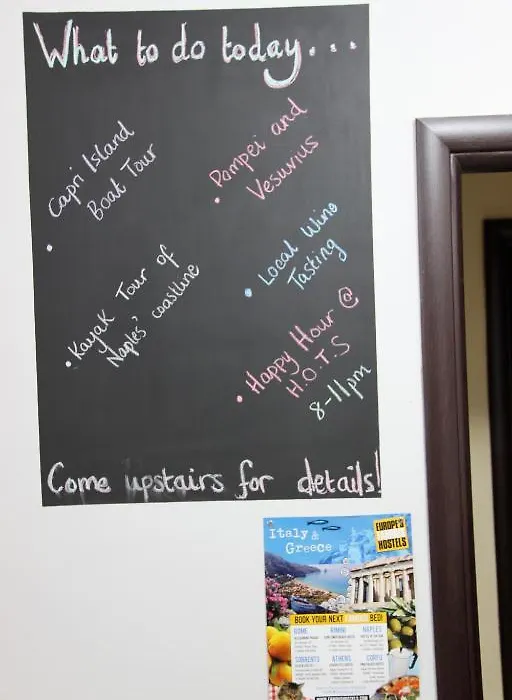 What to do today...
Capri Island
Boat Tour
Pompei and
Vesuvius
Local Wine
Tasting
Kayak Tour of
Naples' coastline
Happy Hour @
H.O.T.S
8-11pm
Come upstairs for details!
Italy &
Greece
EUROPE'S
HOSTELS
BOOK YOUR NEXT BED!
ROME
RIMINI
NAPLES
SORRENTO
ATHENS
CORFU